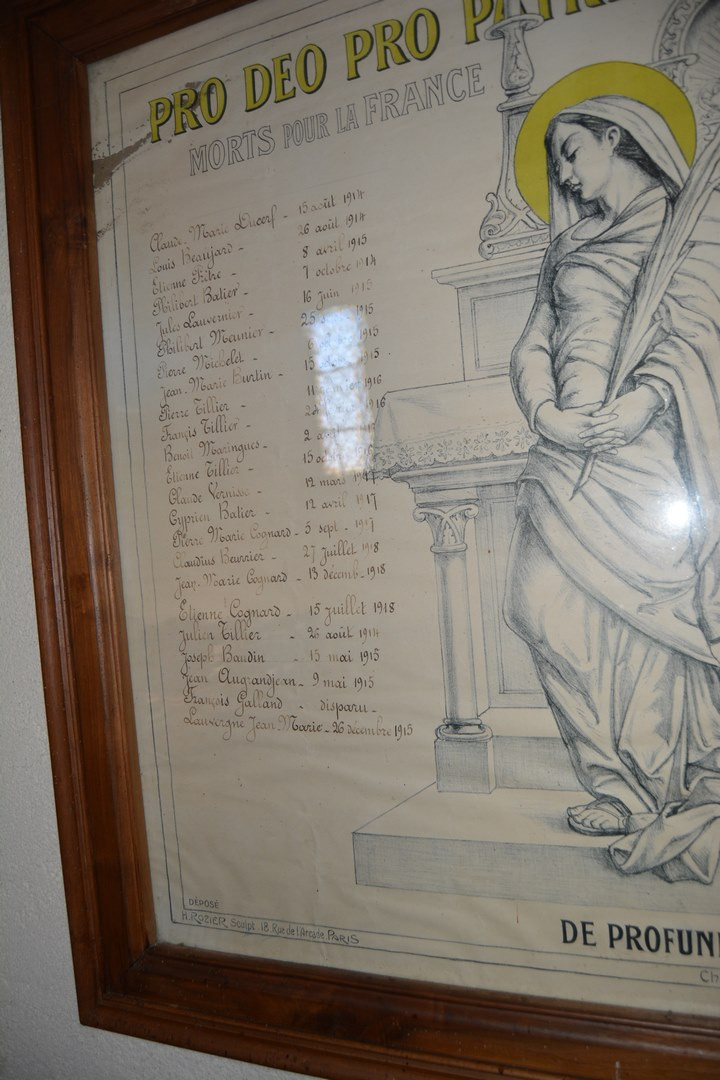 PRO DEO PRO PATRI
MORTS POUR LA FRANCE
Claude Marie Ducorf - 15 août 1914
Louis Beaujard - 26 août 1914
Etienne Fibre - 8 avril 1915
Philibert Balier - 7 octobre 1914
Jules Lauvernier - 16 juin 1915
Philibert Meunier - 25 1915
Pierre Michelet - 1915
Jean-Marie Burtin - 15 1915
Pierre Tillier - 11 1916
Francis Tillier - 1916
Benoit Maringues - 2
Etienne Tillier - 15
Claude Vernisse - 12 mars
Cyprien Balier - 12 avril 1917
Pierre Marie Cognard - 5 sept - 1917
Claudius Beurrier - 27 juillet 1918
Jean-Marie Cognard - 13 décemb. 1918
Etienne Cognard - 15 juillet 1918
Julien Tillier - 26 août 1914
Joseph Baudin - 15 mai 1915
Jean Augrandjean - 9 mai 1915
François Galland - disparu -
Lauvergne Jean Marie - 26 décembre 1915
DÉPOSÉ
H. ROZIER Sculpt. 18 Rue de l'Arcole PARIS
DE PROFUN
CH